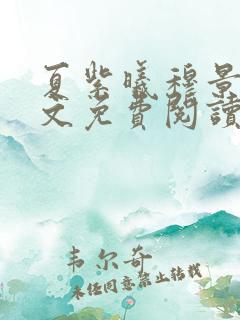 夏紫曦穆景
文免费阅读
韦尔奇
未经同意禁止转载